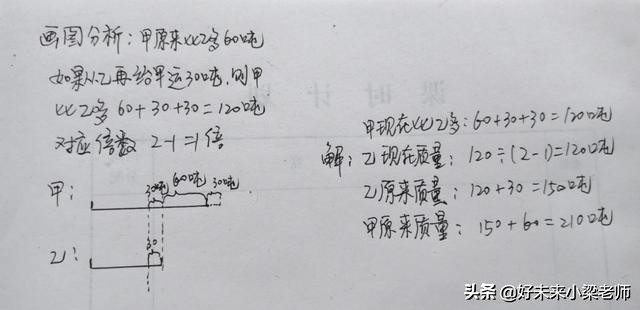 画图分析：甲原来比乙多60吨
如果从乙再给甲运30吨，则甲
比乙多 60+30+30=120吨
对应倍数 2-1=1倍
甲：
30吨 60吨 30吨
乙：
30
甲现在比乙多：60+30+30=120吨
解：乙现在质量：120÷(2-1)=120吨
乙原来质量：120+30=150吨
甲原来质量：150+60=210吨
课时计划
头条 @好未来小梁老师